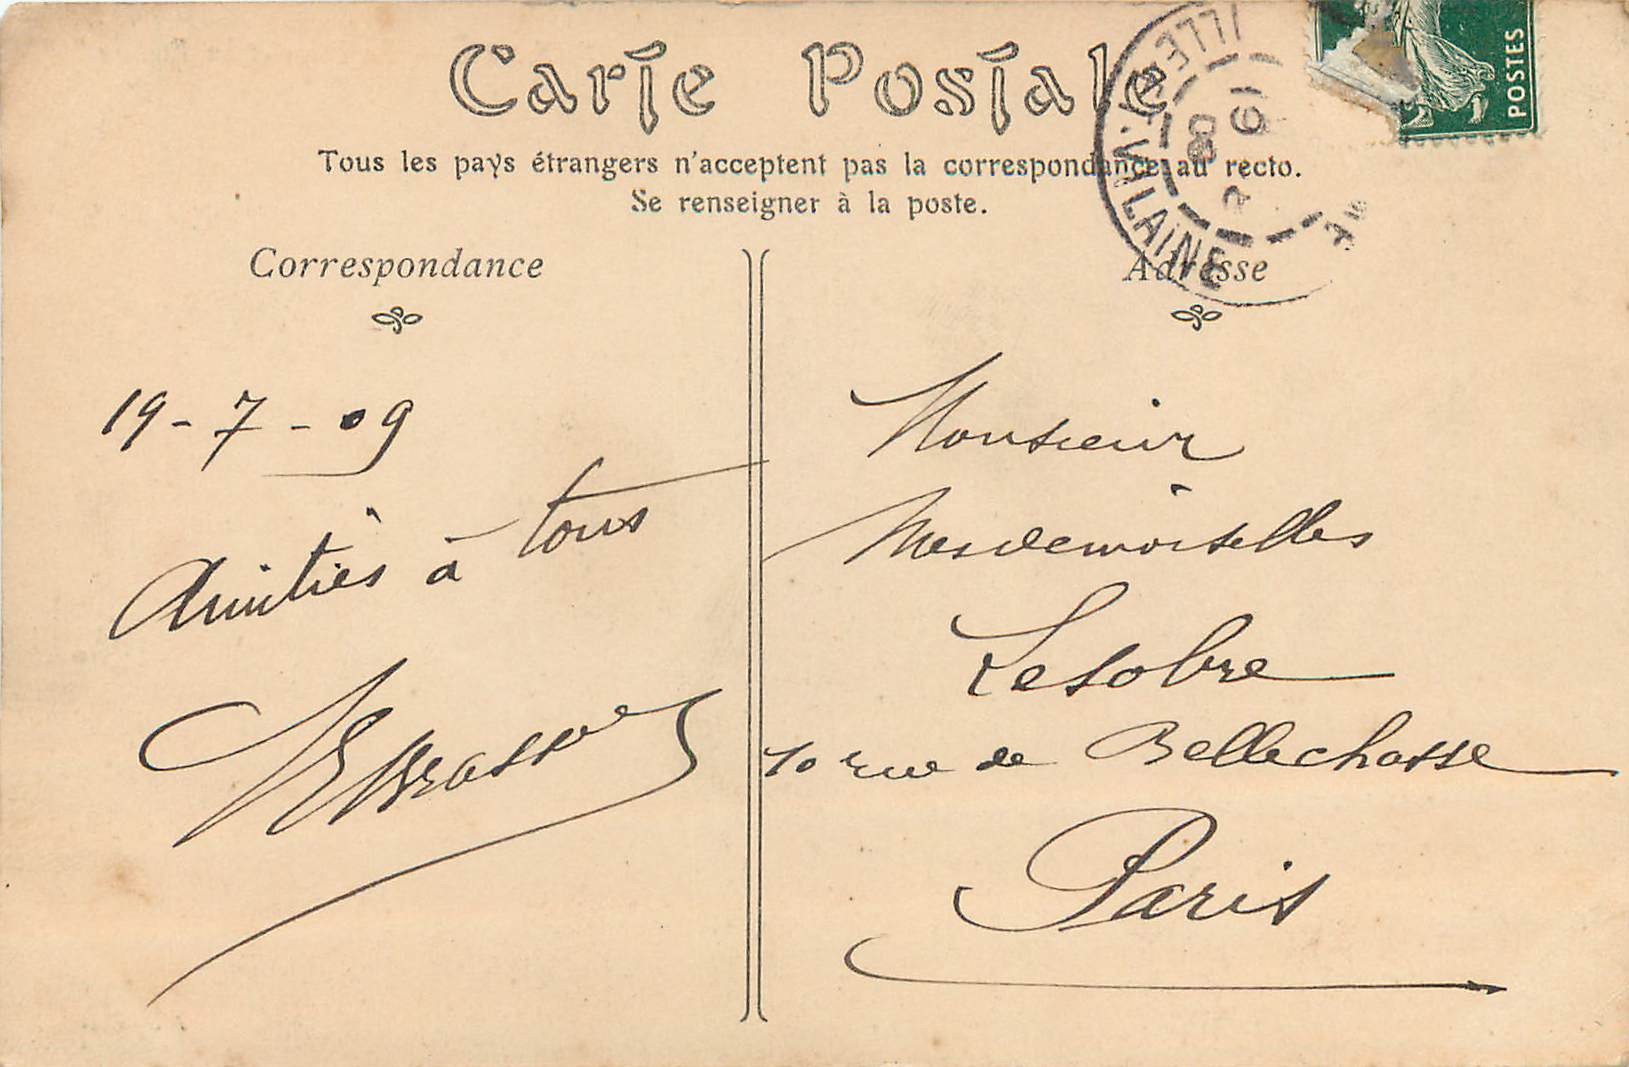 Carte Postale
Tous les pays étrangers n'acceptent pas la correspondance au recto.
Se renseigner à la poste.
Correspondance
19-7-09
Amitiés à tous
Adresse
Monsieur
Mesdemoiselles
Lesobre
10 rue de Bellechasse
Paris
ILLE-ET-VILAINE
19
POSTES